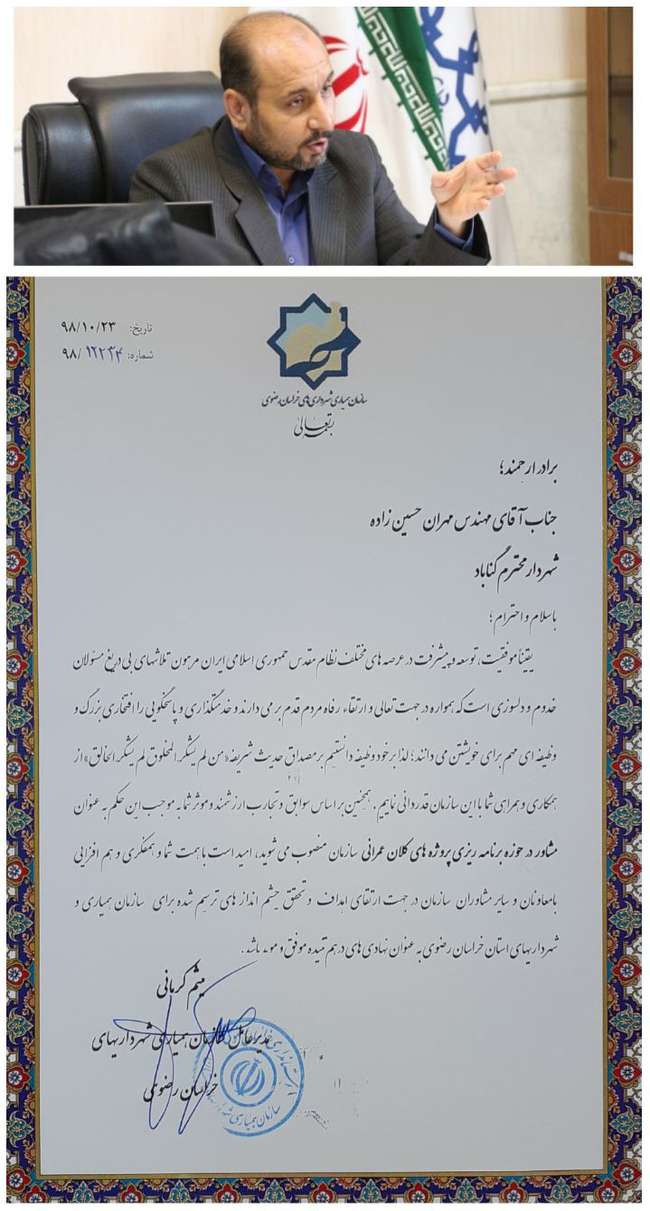 تاریخ: ۹۸/۱۰/۲۳
شماره: ۹۸/۱۲۲۴۴
سازمان همیاری شهرداری های خراسان رضوی
بسمه تعالی
برادر ارجمند؛
جناب آقای مهندس مهران حسین زاده
شهردار محترم گناباد
باسلام و احترام؛
یقیناً موفقیت، توسعه و پیشرفت در عرصه های مختلف نظام مقدس جمهوری اسلامی ایران مرهون تلاشهای بی دریغ مسئولان
خدوم و دلسوزی است که همواره در جهت تعالی و ارتقاء رفاه مردم قدم برمی دارند و خدمتگذاری و پاسخگویی را افتخاری بزرگ و
وظیفه ای مهم برای خویشتن می دانند؛ لذا بر خود وظیفه دانستیم بر مصداق حدیث شریفه «من لم یشکر المخلوق لم یشکر الخالق» از
همکاری و همراهی شما با این سازمان قدردانی نماییم. همچنین بر اساس سوابق و تجارب ارزشمند و موثر شما به موجب این حکم به عنوان
مشاور در حوزه برنامه ریزی پروژه های کلان عمرانی سازمان منصوب می شوید، امید است با همت شما و همفکری و هم افزایی
بامعاونان و سایر مشاوران سازمان در جهت ارتقای اهداف و تحقق چشم انداز های ترسیم شده برای سازمان همیاری و
شهرداریهای استان خراسان رضوی به عنوان نهادی های درهم تنیده موفق و موید باشد.
میثم کرمانی
مدیرعامل سازمان همیاری شهرداریهای
خراسان رضوی